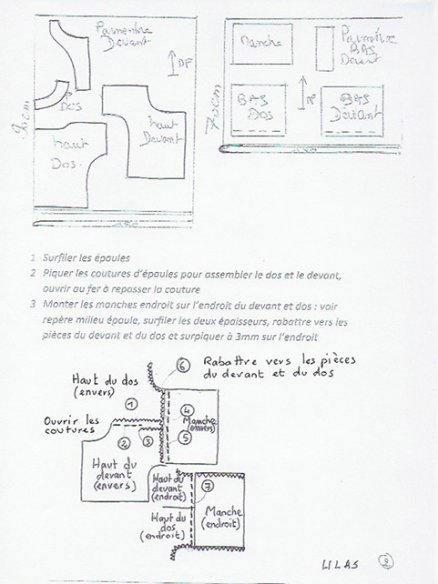 Parmenture
Devant
DF
DOS
haut
Dos
haut
Devant
Manche
Parmenture
BAS
Devant
BAS
DOS
BAS
Devant
70cm
1 Surfiler les épaules
2 Piquer les coutures d'épaules pour assembler le dos et le devant,
ouvrir au fer à repasser la couture
3 Monter les manches endroit sur l'endroit du devant et dos : voir
repère milieu épaule, surfiler les deux épaisseurs, rabattre vers les
pièces du devant et du dos et surpiquer à 3mm sur l'endroit
6
Rabattre vers les pièces
du devant et du dos
Haut du dos
(envers)
1
Ouvrir les
coutures
2
3
4
Manche
(envers)
5
Haut du
devant
(envers)
Haut du
devant
(endroit)
7
Haut du
dos
(endroit)
Manche
(endroit)
LILAS
2